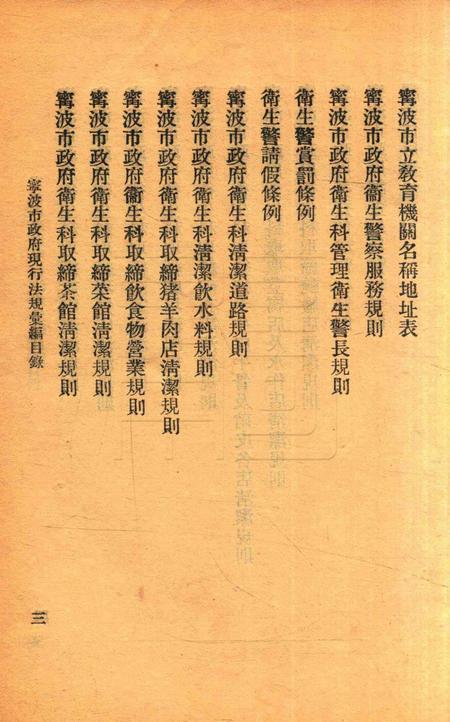 寗波市立敎育機關名稱地址表
寗波市政府衞生警察服務規則
寗波市政府衞生科管理衞生警長規則
衞生警賞罰條例
衞生警請假條例
寗波市政府衞生科清潔道路規則
寗波市政府衞生科清潔飲水料規則
寗波市政府衞生科取締猪羊肉店清潔規則
寗波市政府衞生科取締飲食物營業規則
寗波市政府衞生科取締菜館清潔規則
寗波市政府衞生科取締茶館清潔規則
寗波市政府現行法規彙編目錄
三